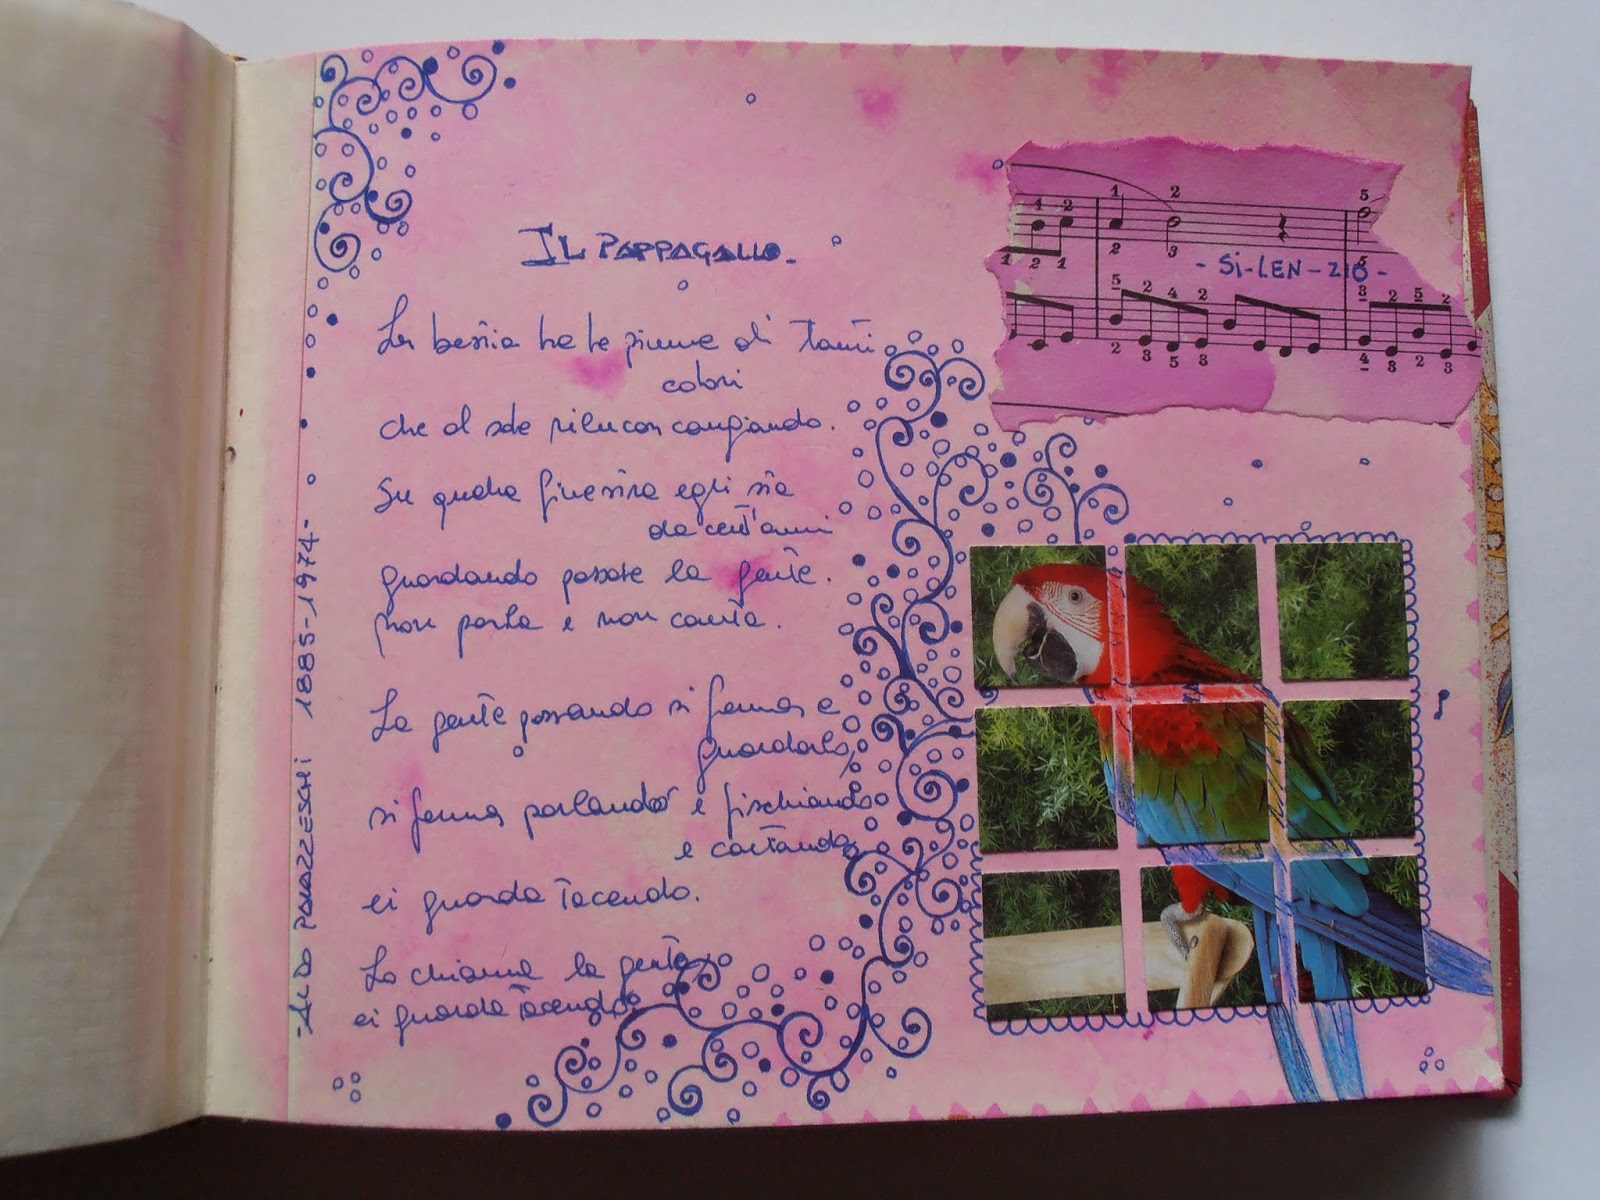 IL PAPPAGALLO.
La bestia ha le piume di tanti
colori
che al sole rilucon cangiando.
Su quella finestra egli sta
da cent'anni
guardando passare la gente.
Non parla e non canta.
La gente passando si ferma a
guardarlo,
si ferma parlando e fischiando
e cantando,
ei guarda tacendo.
Lo chiama la gente,
ei guarda tacendo.
-ALDO PALAZZESCHI 1885-1974-
- Si-LEN-ZIO -